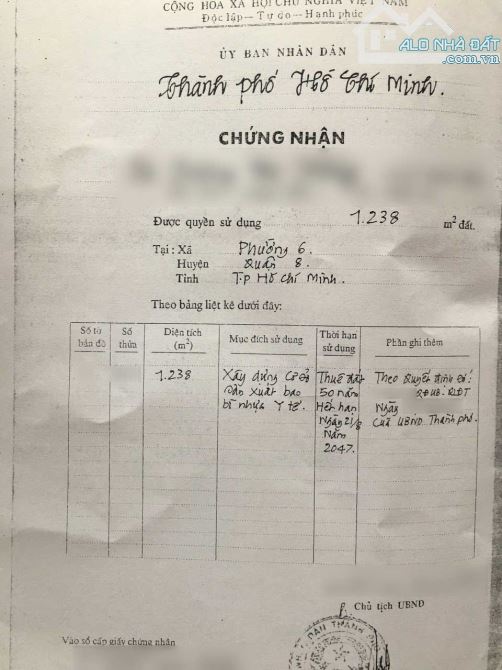 CỘNG HÒA XÃ HỘI CHỦ NGHĨA VIỆT NAM
Độc lập – Tự do – Hạnh phúc
ALO NHÀ ĐẤT
.com.vn
ỦY BAN NHÂN DÂN
Thành phố Hồ Chí Minh.
CHỨNG NHẬN
Được quyền sử dụng 1.238 m² đất.
Tại : Xã Phường 6.
Huyện Quận 8.
Tỉnh T.p Hồ Chí Minh.
Theo bảng liệt kê dưới đây:
Số tờ bản đồ
Số thửa
Diện tích (m²)
Mục đích sử dụng
Thời hạn sử dụng
Phần ghi thêm
1.238
Xây dựng Cơ sở
sản xuất bao
bì nhựa Y tế.
Thuê đất
50 năm
Hết hạn
Ngày 21/8
Năm
2047.
Theo Quyết định số:
QĐ.UB.QLĐT
Ngày
Của UBND. Thành phố.
Chủ tịch UBND
Vào sổ cấp giấy chứng nhận